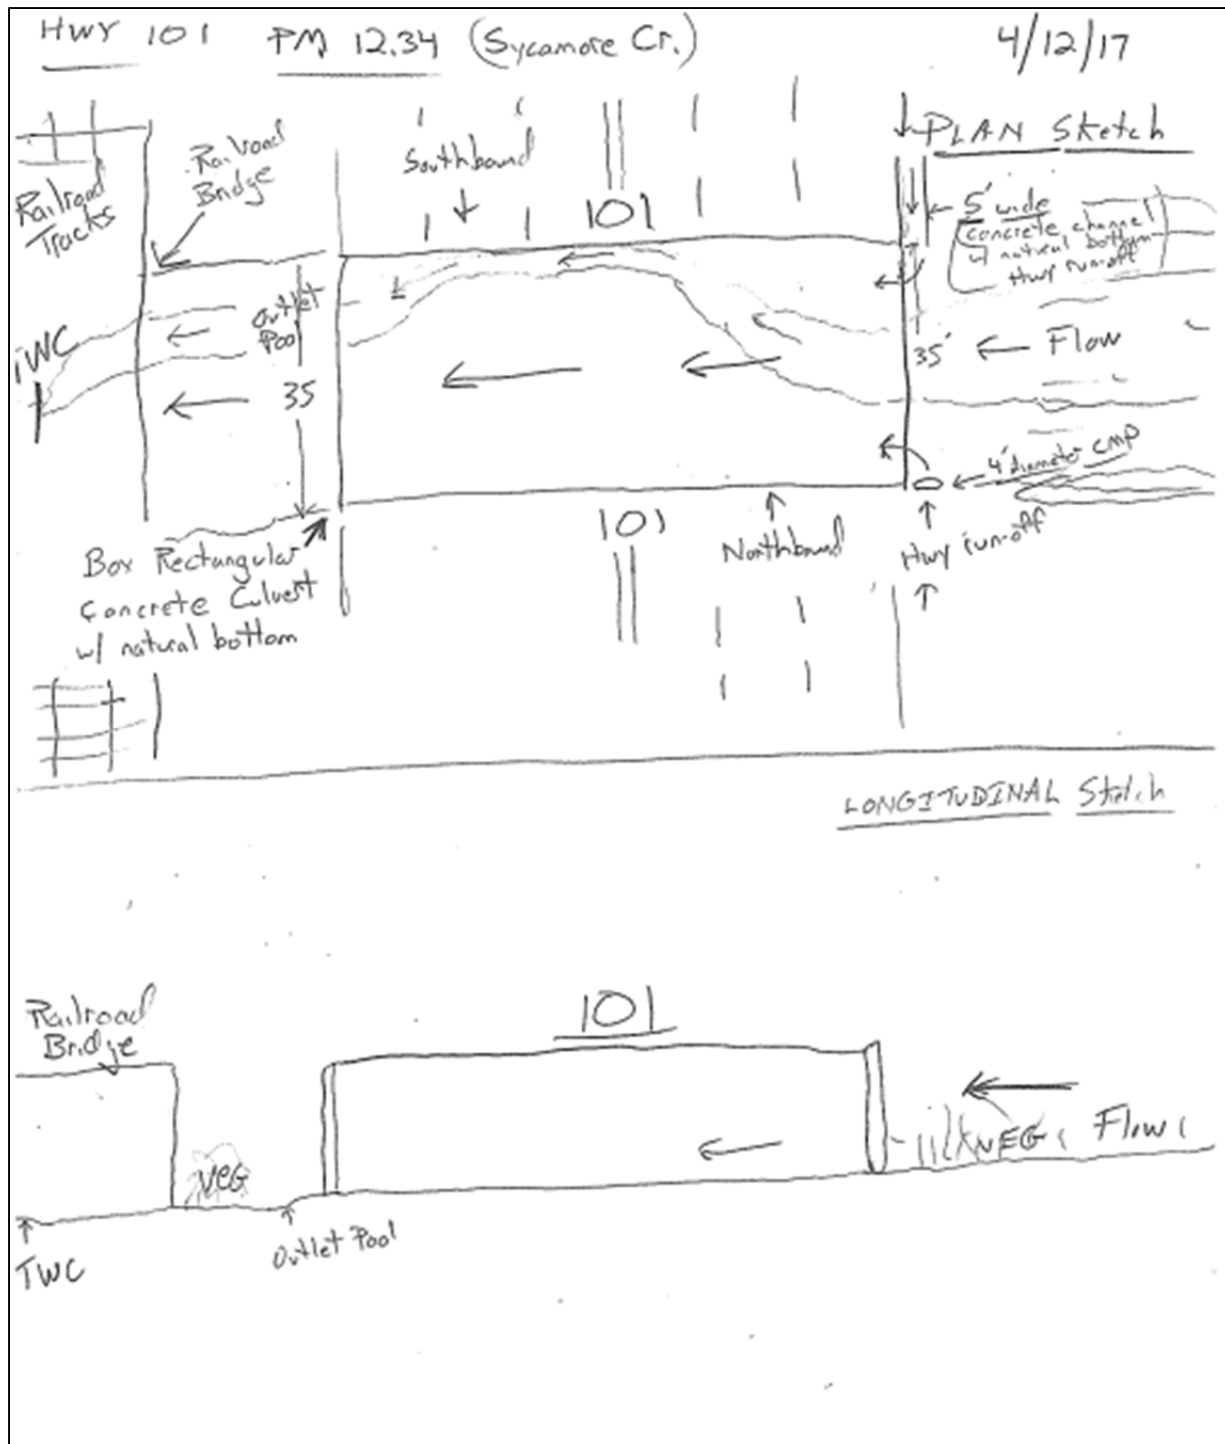 Hwy 101 PM 12.34 (Sycamore Cr.) 4/12/17
PLAN Sketch
Railroad
Tracks
Railroad
Bridge
Southbound
101
5' wide
concrete channel
w/ natural bottom
Hwy run-off
TWC
Outlet
Pool
35
35'
Flow
4' diameter CMP
Hwy run-off
101
Northbound
Box Rectangular
Concrete Culvert
w/ natural bottom
LONGITUDINAL Sketch
Railroad
Bridge
101
VEG
VEG
Flow
Outlet Pool
TWC